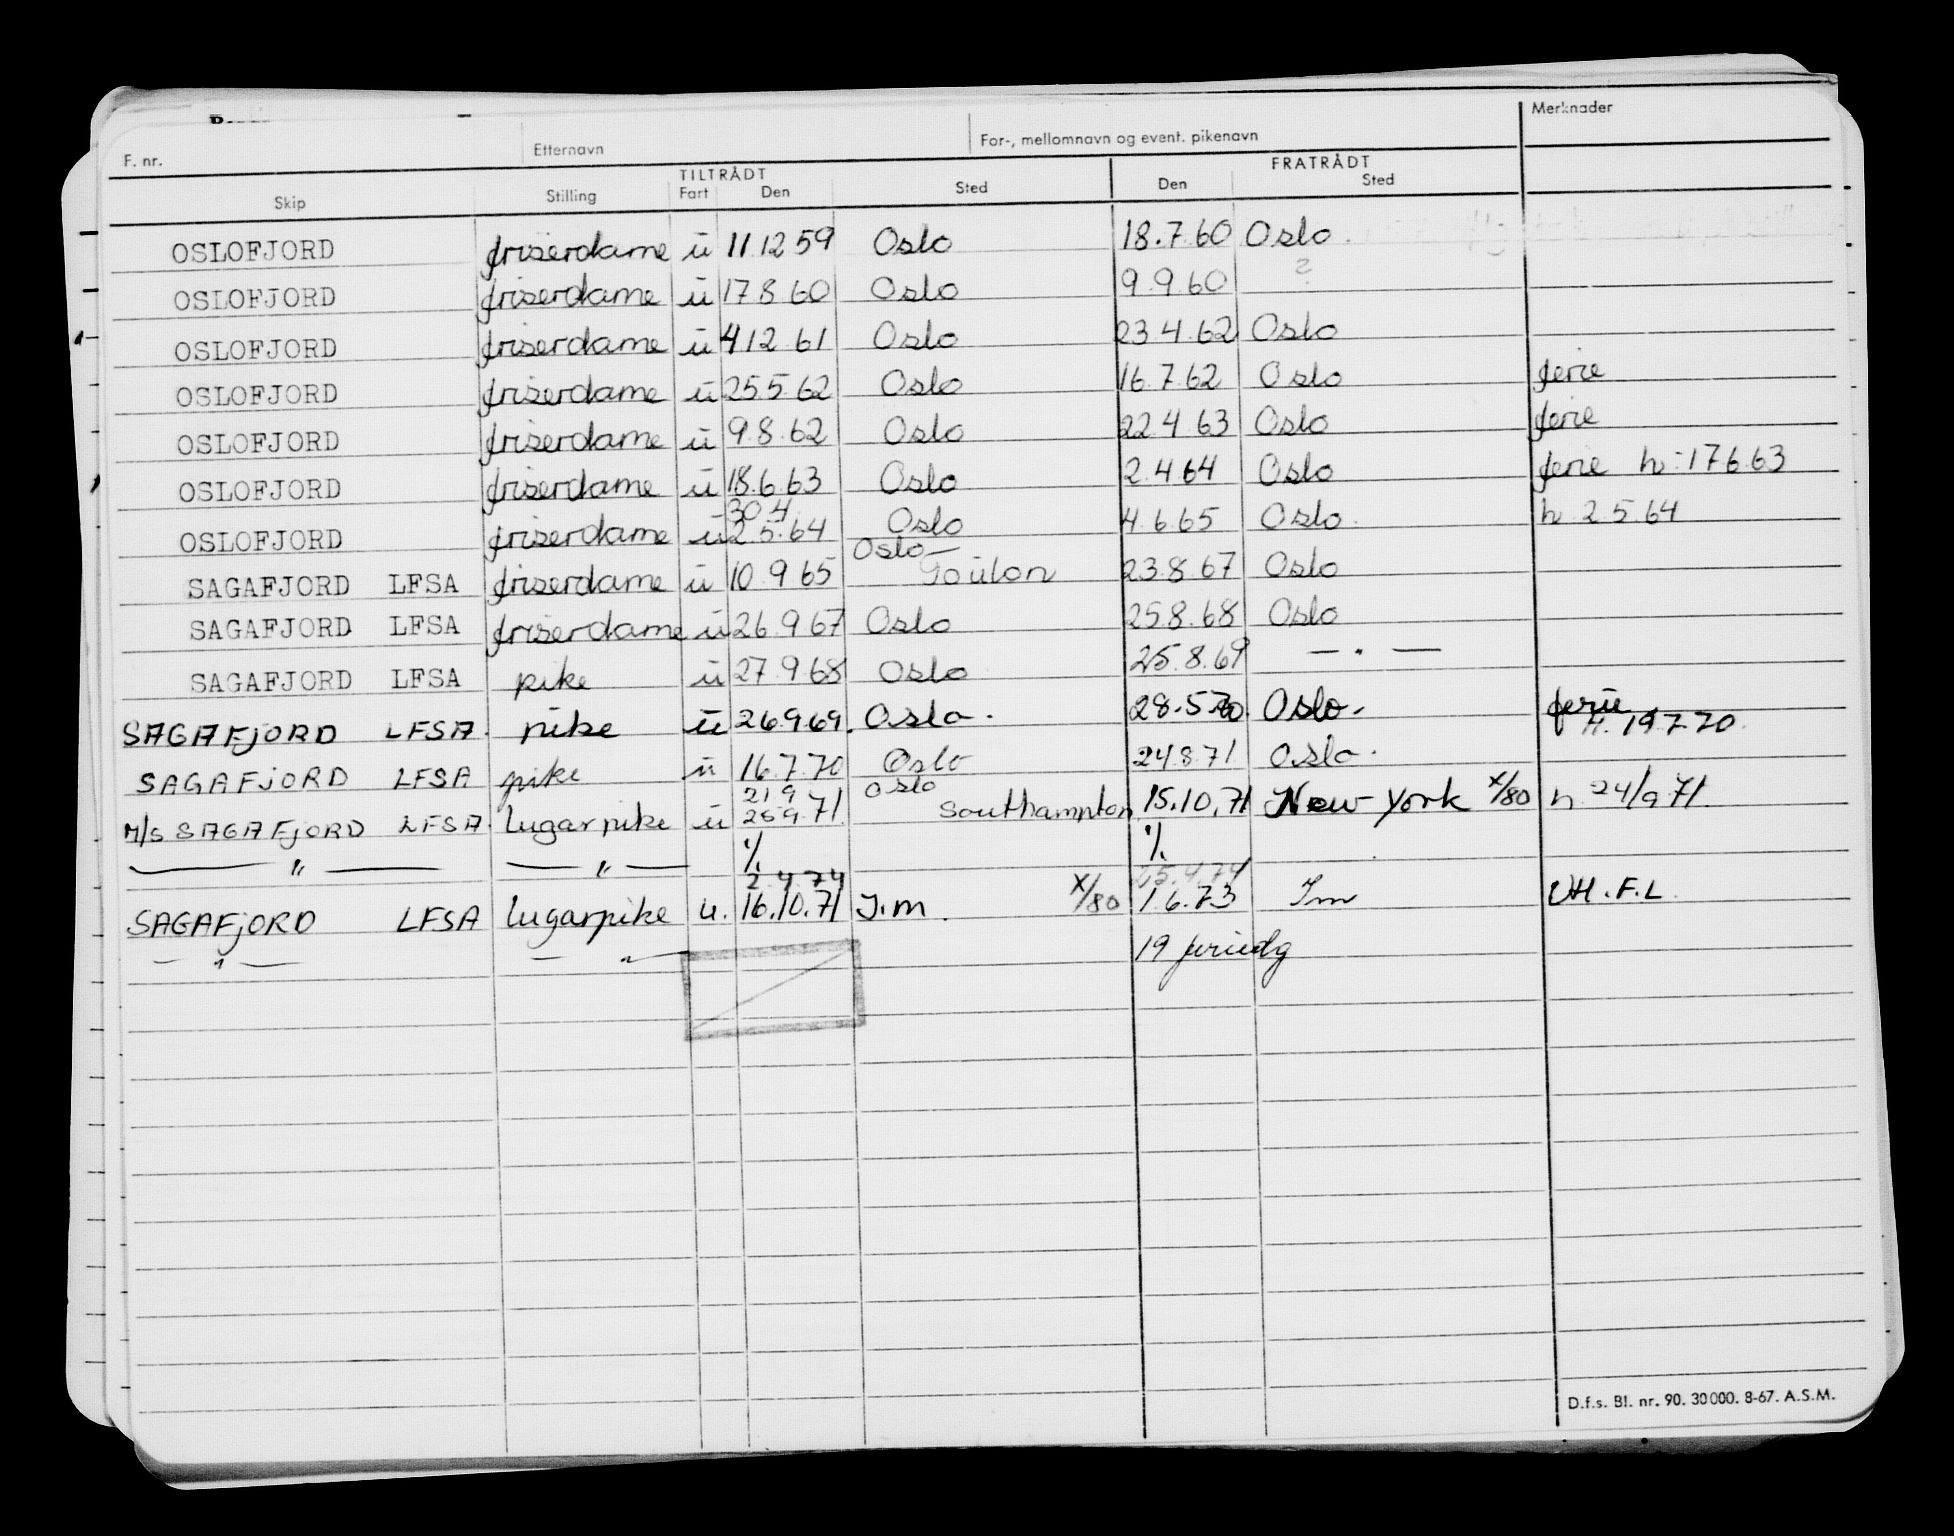 Merknader
F. nr. Etternavn For-, mellomnavn og event. pikenavn
TILTRÅDT FRATRÅDT
Skip Stilling Fart Den Sted Den Sted
OSLOFJORD friserdame u 11 12 59 Oslo 18.7.60 Oslo.
OSLOFJORD friserdame u 17 8 60 Oslo 9.9.60 ?
OSLOFJORD friserdame u 4 12 61 Oslo 23.4.62 Oslo
OSLOFJORD friserdame u 25 5 62 Oslo 16.7.62 Oslo ferie
OSLOFJORD friserdame u 9.8.62 Oslo 22.4.63 Oslo ferie
OSLOFJORD friserdame u 18.6.63 Oslo 2.4.64 Oslo ferie h: 17 6.63
30 4
OSLOFJORD friserdame u 2 5.64 Oslo 4.6.65 Oslo. h 2.5.64
Oslo—
SAGAFJORD LFSA friserdame u 10 9 65 Toulon 23.8.67 Oslo
SAGAFJORD LFSA friserdame u 26.9 67 Oslo 25.8.68 Oslo
SAGAFJORD LFSA pike u 27.9.68 Oslo 25.8.69 — " —
SAGAFJORD LFSA. pike u 26.9.69. Oslo. 28.5.70. Oslo. ferie
H. 19.7.70.
SAGAFJORD LFSA pike u 16.7.70 Oslo 24.8.71 Oslo.
21 9 Oslo
M/S SAGAFJORD LFSA. Lugarpike u 25 9.71 Southampton 15.10.71 New York x/80 h 24/9 71.
— " — — " — % %
2.4.74 25.4.74
SAGAFJORD LFSA Lugarpike u. 16.10.71 J.m. x/80 1.6.73 Jm VH.F.L.
— " — — " — 19 feriedg
D.f.s. Bl. nr. 90. 30 000. 8-67. A.S.M.